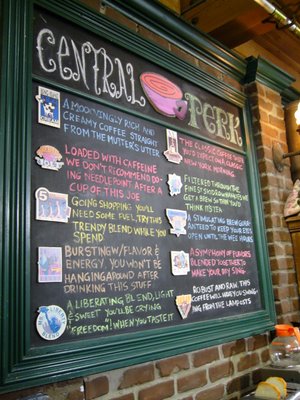 CENTRAL PERK
A MOOVINGLY RICH AND
CREAMY COFFEE STRAIGHT
FROM THE MUTTER'S UTTER
LOADED WITH CAFFEINE
WE DON'T RECOMMEND DO-
ING NEEDLEPOINT AFTER A
CUP OF THIS JOE
GOING SHOPPING? YOU'LL
NEED SOME FUEL, TRY THIS
TRENDY BLEND WHILE YOU
SPEND
BURSTING W/FLAVOR &
ENERGY. YOU WON'T BE
HANGING AROUND AFTER
DRINKING THIS STUFF
A LIBERATING BLEND, LIGHT
& SWEET YOU'LL BE CRYING
"FREEDOM"! WHEN YOU TASTE IT
THE CLASSIC COFFEE
YOU'D EXPECT OUR CLASSIC
NEW YORK MORNING
FILTERED THROUGH THE
FINEST
GET A BREW SO THIN YOU'LL
THINK ITS TEA
A STIMULATING BREW GUAR-
ANTEED TO KEEP YOUR EYES
OPEN UNTIL THE WEE HOURS
A SYMPHONY OF FLAVORS
BLENDED TOGETHER TO
MAKE YOUR DAY SING
ROBUST AND RAW THIS
COFFEE WILL HAVE YOU SWING-
ING FROM THE LAMP-POSTS